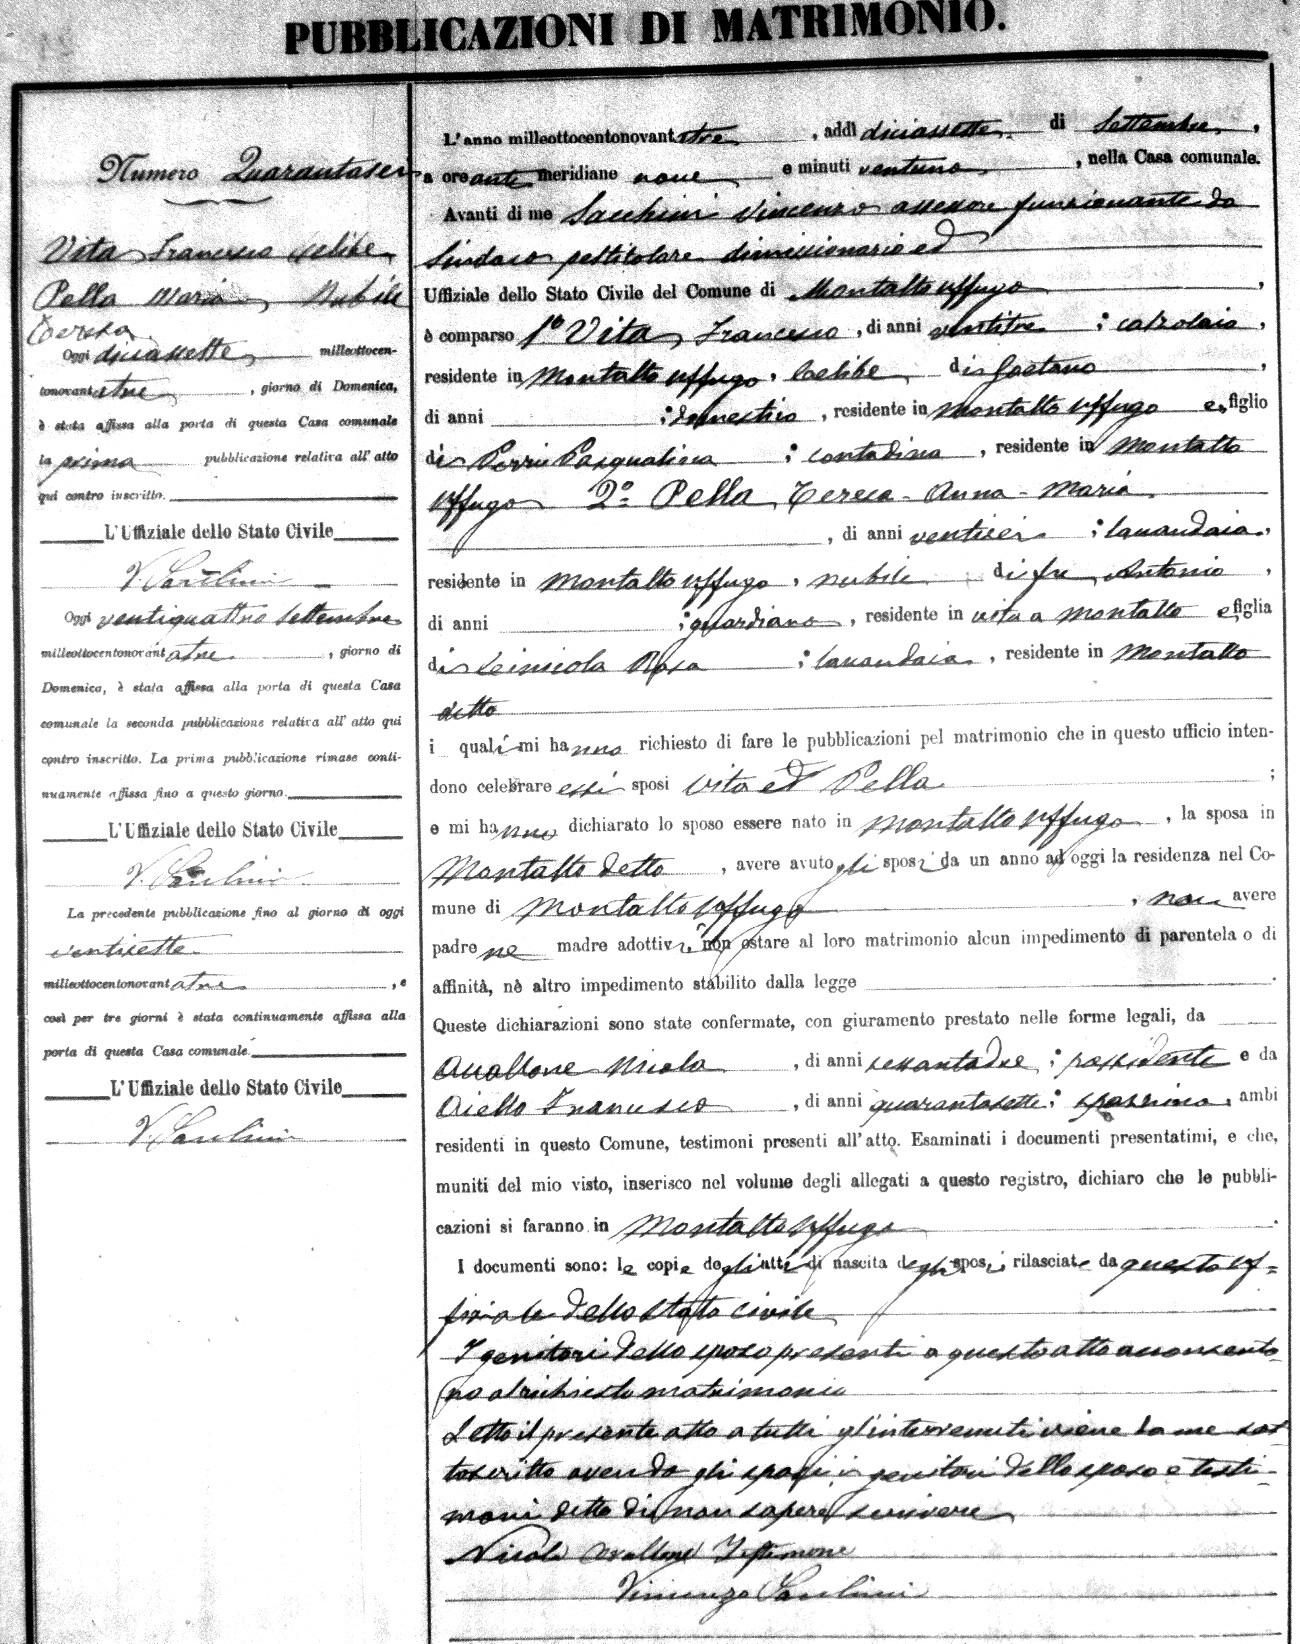 PUBBLICAZIONI DI MATRIMONIO.
Numero Quarantasei
Vita Francesco celibe
Pella Maria Nubile
Teresa
Oggi diciassette milleottocen-
tonovantatre, giorno di Domenica,
è stata affissa alla porta di questa Casa comunale
la prima pubblicazione relativa all'atto
qui contro inscritto.
L'Uffiziale dello Stato Civile
Oggi ventiquattro Settembre
milleottocentonovantatre, giorno di
Domenica, è stata affissa alla porta di questa Casa
comunale la seconda pubblicazione relativa all'atto qui
contro inscritto. La prima pubblicazione rimase conti-
nuamente affissa fino a questo giorno.
L'Uffiziale dello Stato Civile
La precedente pubblicazione fino al giorno di oggi
ventisette
milleottocentonovantatre, e
così per tre giorni è stata continuamente affissa alla
porta di questa Casa comunale.
L'Uffiziale dello Stato Civile
L'anno milleottocentonovantatre, addì diciassette di Settembre,
a ore anti meridiane nove e minuti ventuno, nella Casa comunale.
Avanti di me Vincenzo assessore funzionante da
Sindaco pel titolare dimissionario ed
Uffiziale dello Stato Civile del Comune di Montalto Uffugo,
è comparso 1º Vita Francesco, di anni ventitre; calzolaio,
residente in Montalto Uffugo, celibe di Gaetano,
di anni ; domestico, residente in Montalto Uffugo e figlio
di Perri Pasqualina; contadina, residente in Montalto
Uffugo 2º Pella Teresa-Anna-Maria
, di anni ventisei; lavandaia,
residente in Montalto Uffugo, nubile di fu Antonio,
di anni ; guardiano, residente in vita a Montalto e figlia
di Rosa; lavandaia, residente in Montalto
detto
i quali mi hanno richiesto di fare le pubblicazioni pel matrimonio che in questo ufficio inten-
dono celebrare essi sposi Vita ed Pella;
e mi hanno dichiarato lo sposo essere nato in Montalto Uffugo, la sposa in
Montalto detto, avere avuto gli sposi da un anno ad oggi la residenza nel Co-
mune di Montalto Uffugo, non avere
padre ne madre adottivi, non ostare al loro matrimonio alcun impedimento di parentela o di
affinità, nè altro impedimento stabilito dalla legge.
Queste dichiarazioni sono state confermate, con giuramento prestato nelle forme legali, da
Avallone Nicola, di anni sessantadue; possidente e da
Aiello Francesco, di anni quarantasette; ambi
residenti in questo Comune, testimoni presenti all'atto. Esaminati i documenti presentatimi, e che,
muniti del mio visto, inserisco nel volume degli allegati a questo registro, dichiaro che le pubbli-
cazioni si faranno in Montalto Uffugo.
I documenti sono: le copie degli atti di nascita degli sposi rilasciate da questo Uf=
fiziale dello Stato Civile
I genitori dello sposo presenti a questo atto acconsento-
no al richiesto matrimonio
Letto il presente atto a tutti gl'intervenuti viene da me sot-
toscritto avendo gli sposi i genitori dello sposo e testi-
moni detto di non sapere scrivere
Nicola Avallone Testimone
Vincenzo